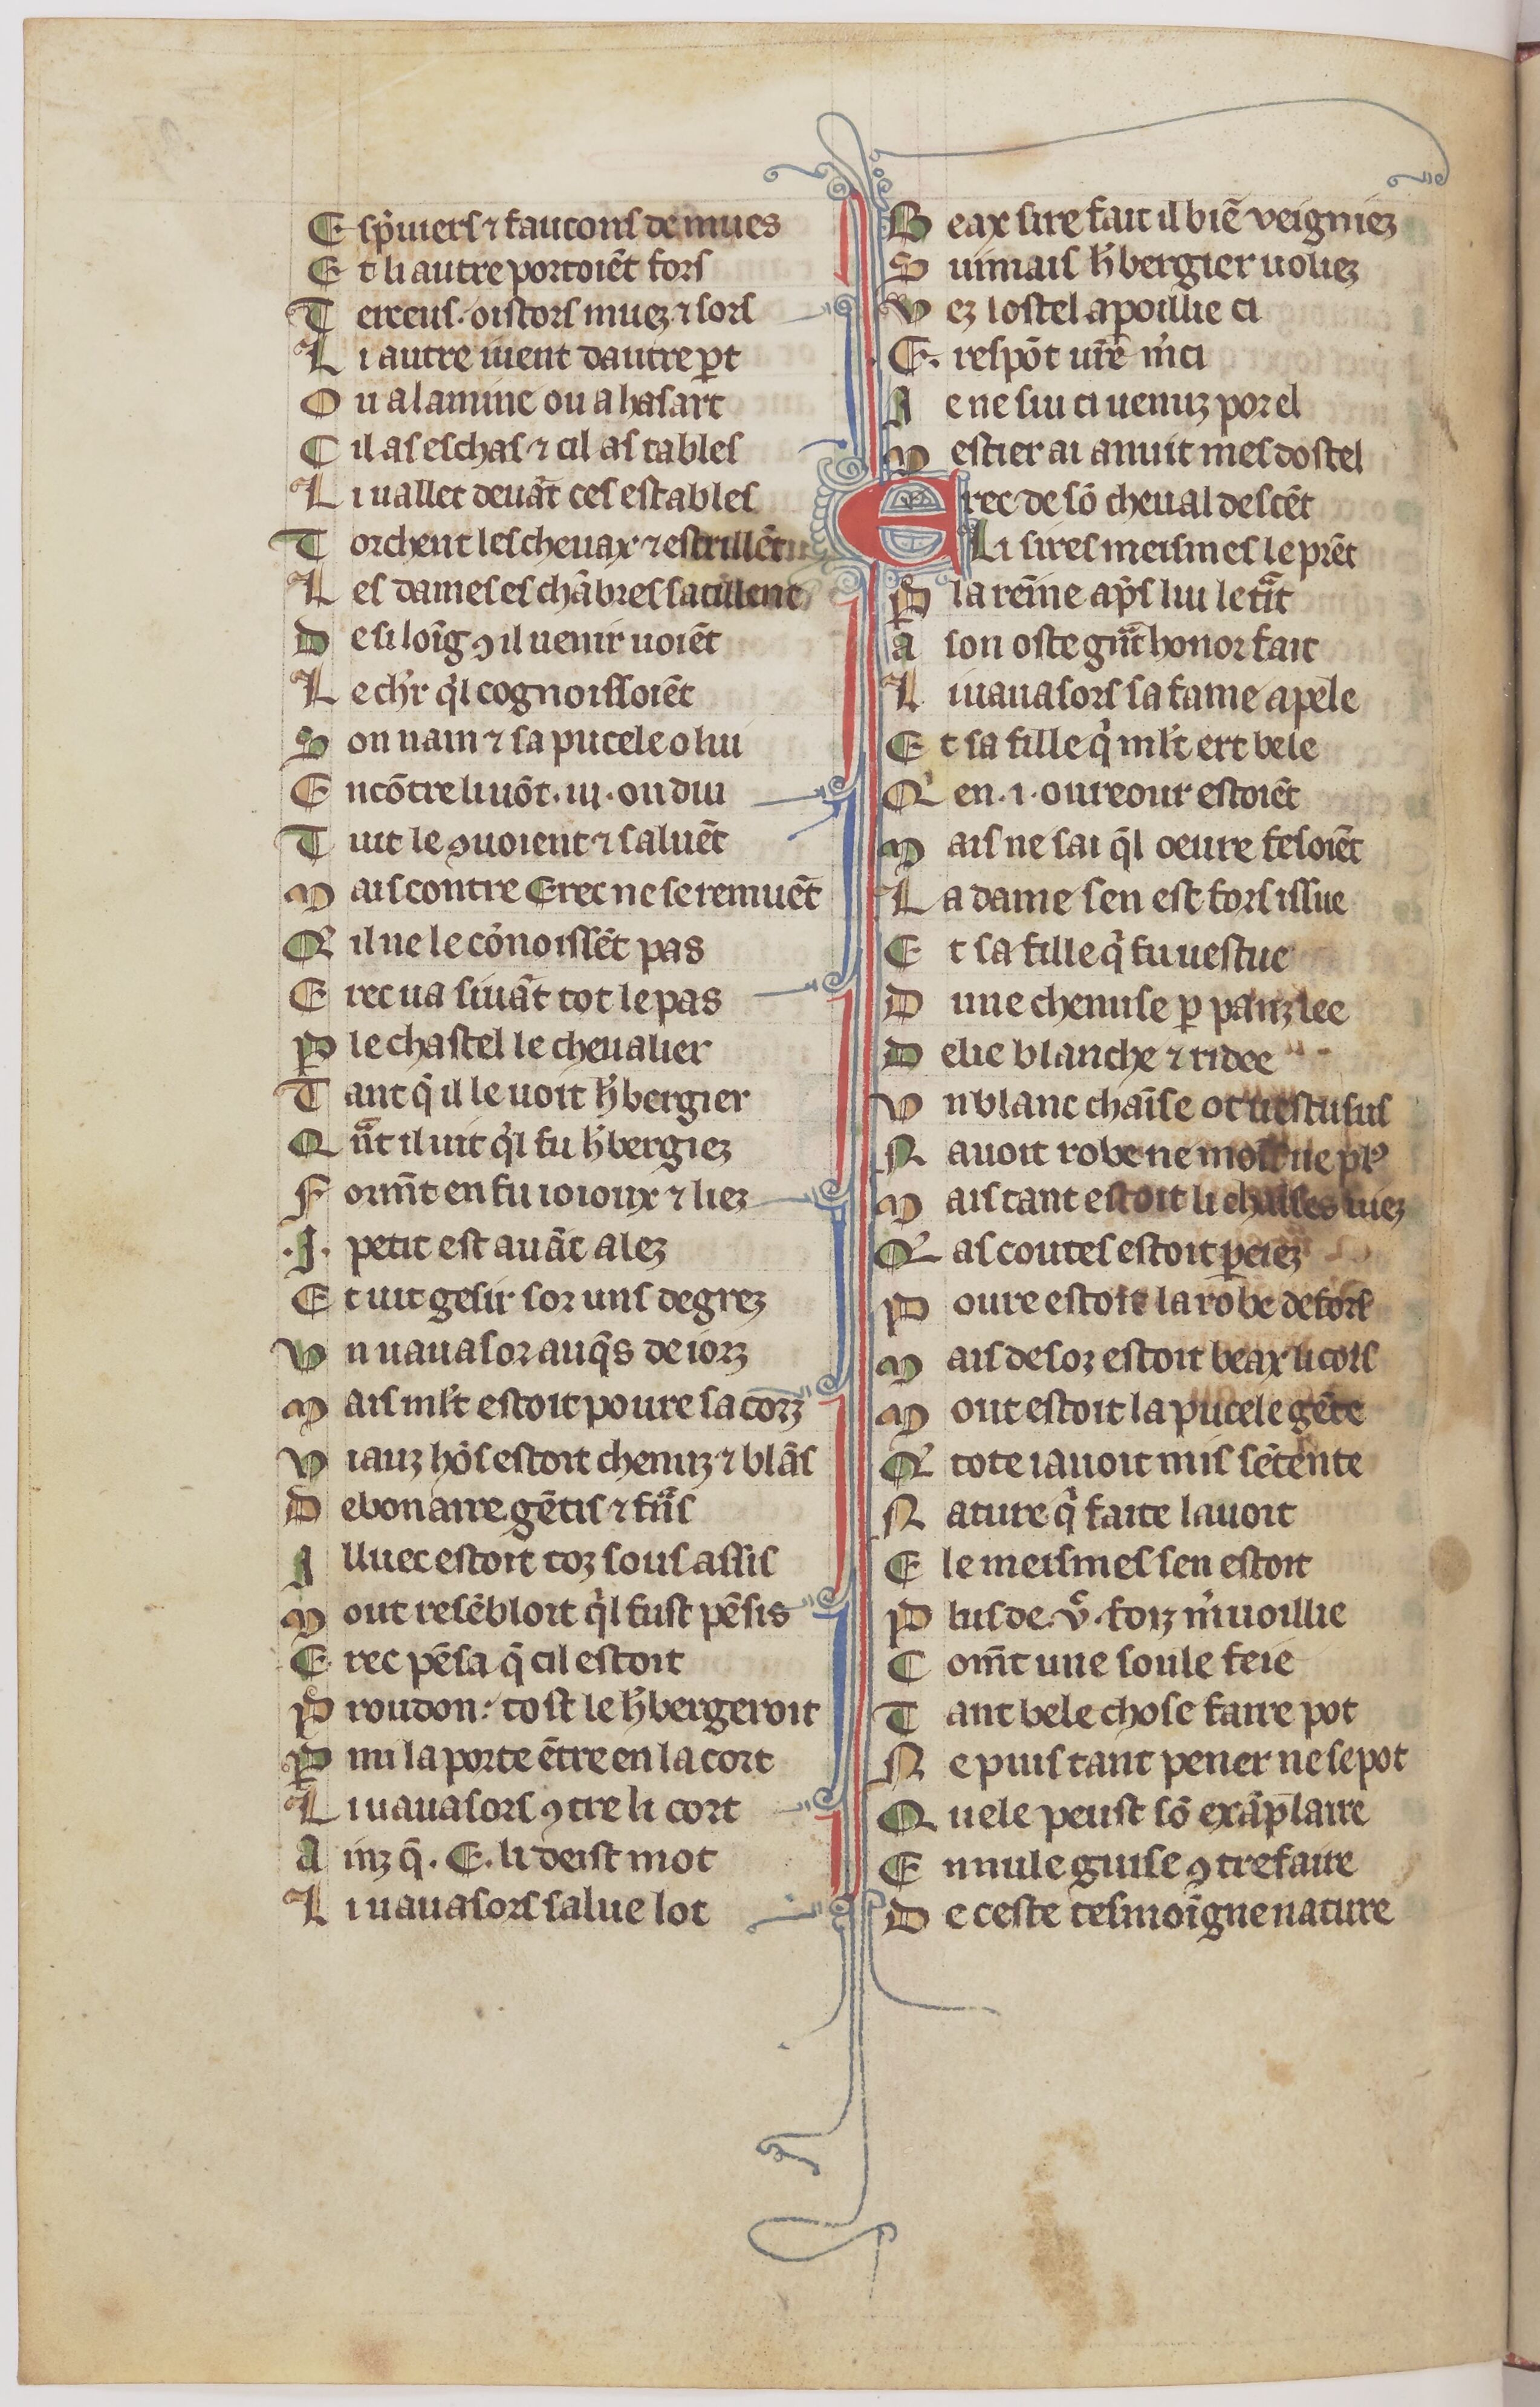 E sp̃iuiers ⁊ faucons de mues
E t li autre portoiẽt fors
T erceus. oistors muez ⁊ sors
L i autre uient dautre ꝑt
O u a la mine ou a hasart
C il as eschas ⁊ cil as tables
L i uallet deuãt ces estables
T orchent les cheuax ⁊ estrillẽt
L es dames es chãbres satillent
D e si loĩg ꝯ il uenir uoiẽt
L e chr̃ qͥl cognoissoiẽt
S on nain ⁊ sa pucele o lui
E ncõtre li uõt .iii. ou dui
T uit le ꝯuoient ⁊ saluẽt
M ais contre Erec ne se remuẽt
Qͬ il ne le cõnoissẽt pas
E rec ua siuãt tot le pas
Ꝑ le chastel le cheualier
T ant q̃ il le uoit h̾bergier
Q ñt il uit qͥl fu h̾bergiez
F ormт̃ en fu ioioux ⁊ liez
.I. petit est auãt alez
E t uit gesir sor uns degrez
V n uauasor auq̃s de iorz
M ais ml̃t estoit poure sa corz
V iauz hõs estoit chenuz ⁊ blãs
D ebonaire gẽtis ⁊ fᷓns
I lluec estoit toz sous assis
M out resẽbloit qͥl fust pẽsis
E rec pẽsa q̃ cil estoit
P roudon: tost le h̾bergeroit
Ꝑ mi la porte ẽtre en la cort
L i uauasors ꝯtre li cort
A inz q̃ .E. li deist mot
L i uauasors salue lot
B eax sire fait il biẽ veigniez
S uimais h̾bergier uoliez
V ez lostel apoillie ci
E. respõt ur̃e m̾ci
I e ne sui ci uenuz por el
M estier ai anuit mes dostel
Erec de sõ cheual descẽt
Li sires meismes le prẽt
Ꝑ la reĩne ap̃s lui le tᷓit
A son oste gᷓnt honor fait
L i uauasors sa fame apele
E t sa fille qͥ ml̃t ert bele
Qͥ en .i. oureour estoiẽt
M ais ne sai q̃l oeure fesoiẽt
L a dame sen est fors issue
E t sa fille qͥ fu uestue
D une chemise ꝑ panz lee
D elie blanche ⁊ ridee
V n blanc chaĩse ot uestu sus
N auoit robe ne moĩs ne pl᷒
M ais tant estoit li chaises uiez
Qͤ as coutes estoit ꝑciez
P oure estoit la robe defors
M ais desoz estoit beax li cors
M out estoit la pucele gẽte
Qͬ tote iauoit mis sẽtente
N ature qͥ faite lauoit
E le meismes sen estoit
P lus de .v͛. foiz m̾uoillie
C om̃t une soule feie
T ant bele chose faire pot
N e puis tant pener ne se pot
Q uele peust sõ exãplaire
E n nule guise ꝯtrefaire
D e ceste tesmoĩgne nature